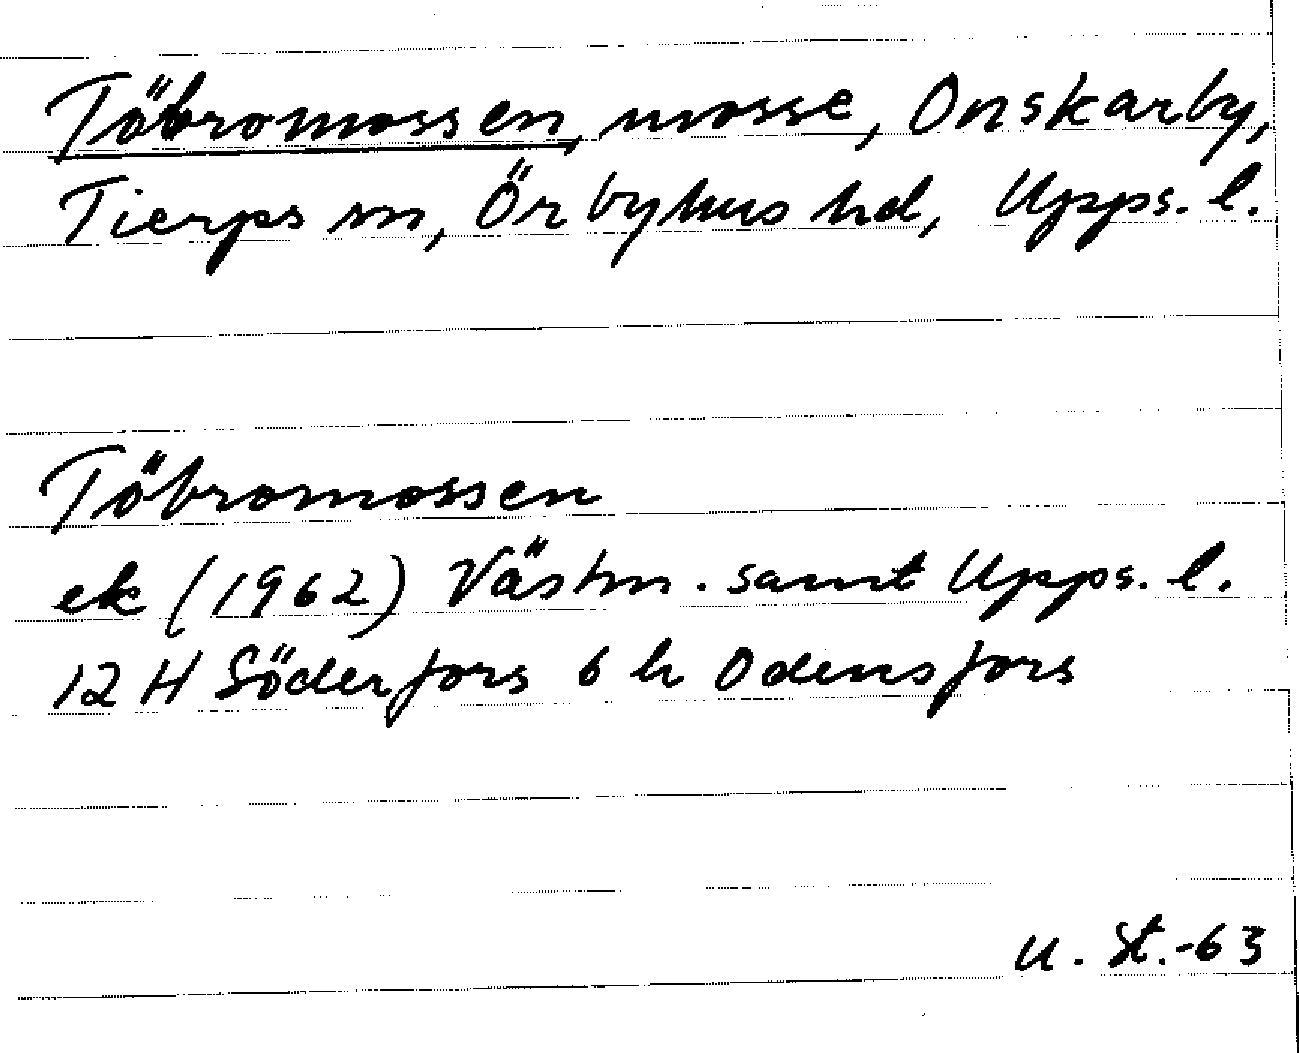 Töbromossen, mosse, Onskarby,
Tierps sn, Örbyhus hd, Upps. l.
Töbromossen
ek (1962) Västm. samt Upps. l.
12 H Söderfors 6 h Odensfors
U. St.-63